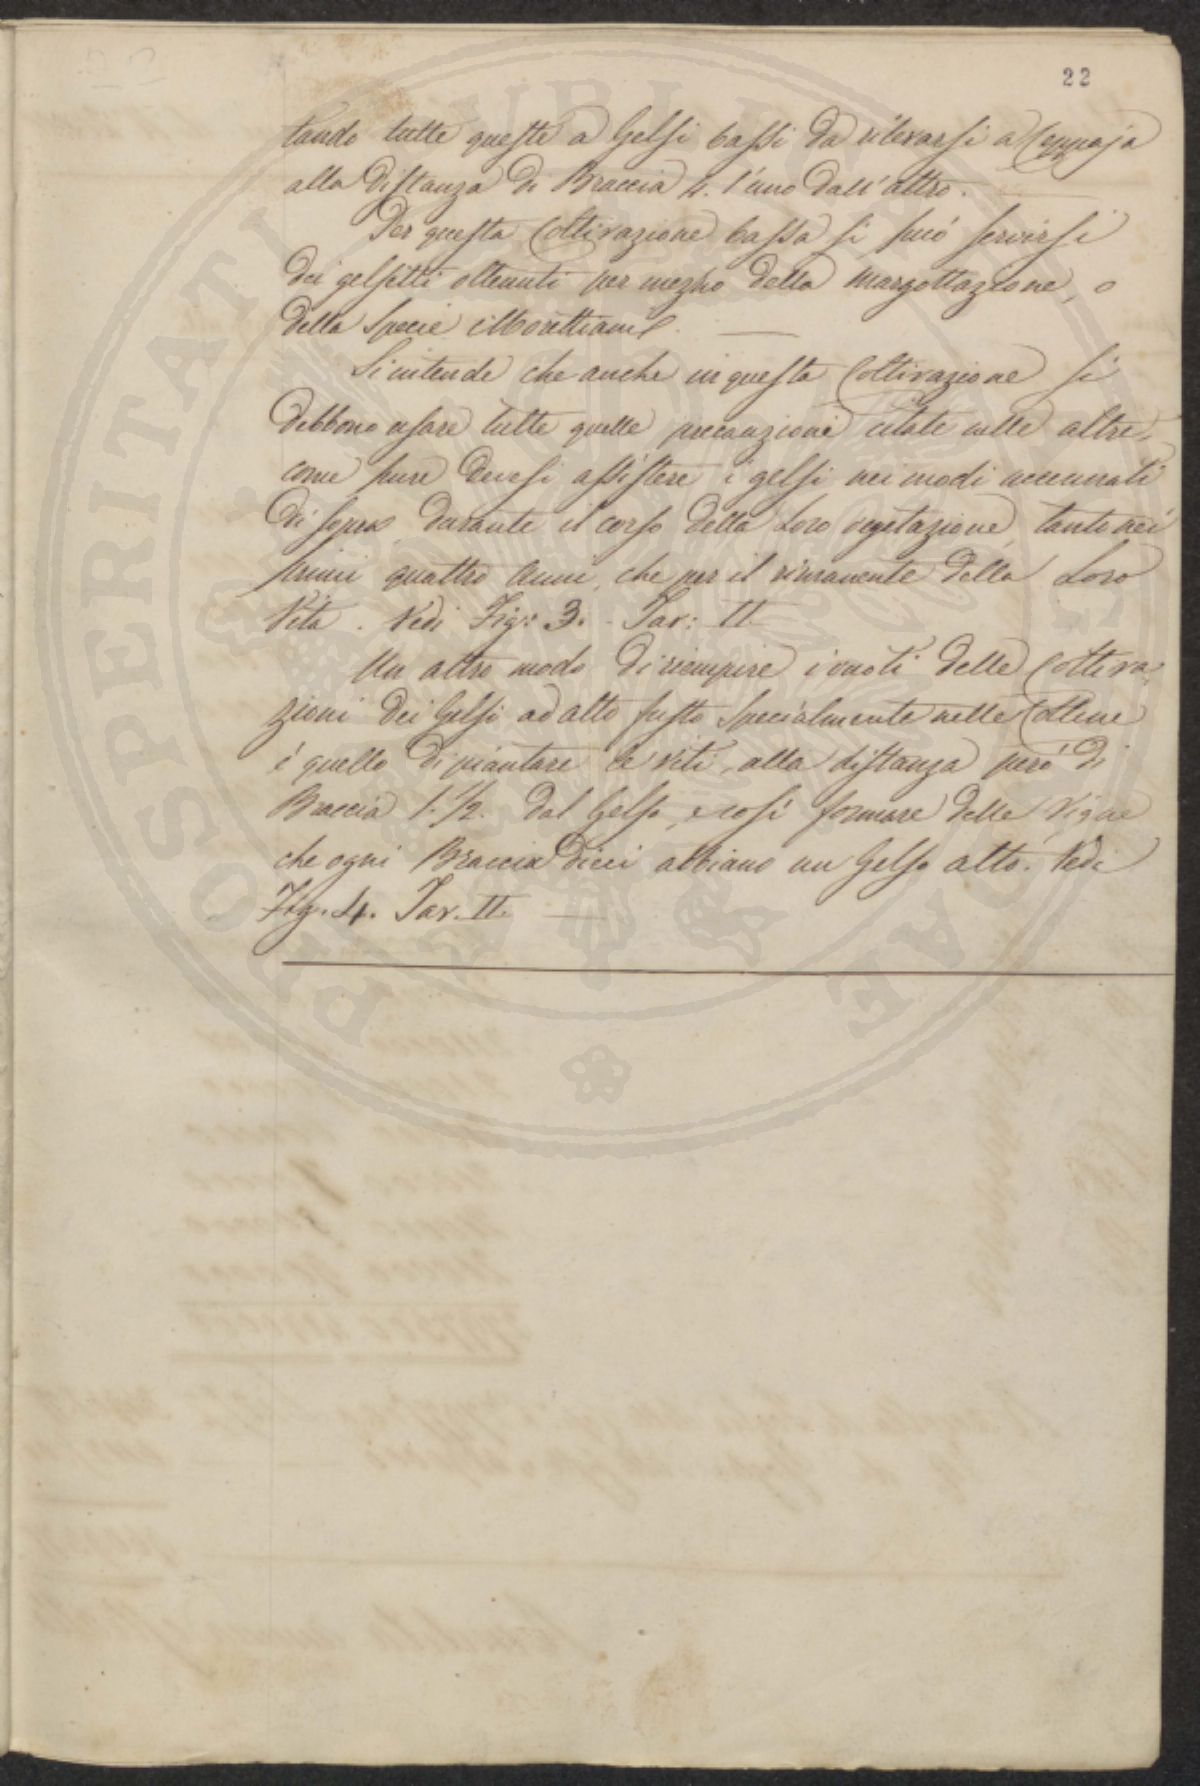 22
tando tutte queste a Gelsi bassi da rilevarsi a Ceppaja
alla distanza di Braccia 4. l'uno dall'altro.
Per questa Coltivazione bassa si può servirsi
dei gelsetti ottenuti per mezzo della margottazione, o
della Specie Morettiana.
S'intende che anche in questa Coltivazione si
debbono usare tutte quelle precauzioni citate nelle altre,
come pure devesi assistere i gelsi nei modi accennati
di sopra durante il corso della Loro vegetazione, tanto nei
primi quattro Anni, che per il rimanente della Loro
Vita. Vedi Fig: 3. Tav: II
Un altro modo di riempire i vuoti delle Coltiva,
zioni dei Gelsi ad alto fusto specialmente nelle Colline
è quello di piantare le viti, alla distanza però di
Braccia 1.1/2. dal Gelso, e così formare delle Vigne
che ogni Braccia dieci abbiano un Gelso alto. Vedi
Fig. 4. Tav. II.
PROSPERITATI PUBLICAE